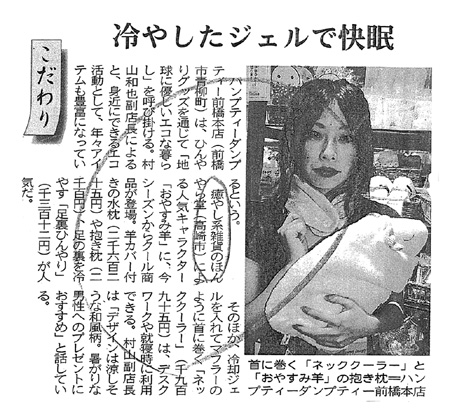 冷やしたジェルで快眠
こだわり
ハンプティーダンプ
ティー前橋本店(前橋
市青柳町)は、ひんや
りグッズを通じて「地
球に優しいエコな暮ら
し」を呼び掛ける。村
山和也副店長による
と、身近にできるエコ
活動として、年々アイ
テムも豊富になってい
るという。
癒やし系雑貨のほん
やら堂(高崎市)によ
る人気キャラクター
「おやすみ羊」に、今
シーズンからクール商
品が登場。羊カバー付
きの水枕(二千六百二
十五円)や抱き枕(二
千百円)、足の裏を冷
やす「足裏ひんやり」
(千三百十二円)が人
気だ。
そのほか、冷却ジェ
ルを入れてマフラーの
ように首に巻く「ネッ
ククーラー」(千九百
九十五円)は、デスク
ワークや就寝時に利用
できる。村山副店長
は「デザインは涼しそ
うな和風柄。暑がりな
男性へのプレゼントに
おすすめ」と話してい
る。
首に巻く「ネッククーラー」と
「おやすみ羊」の抱き枕＝ハン
プティーダンプティー前橋本店